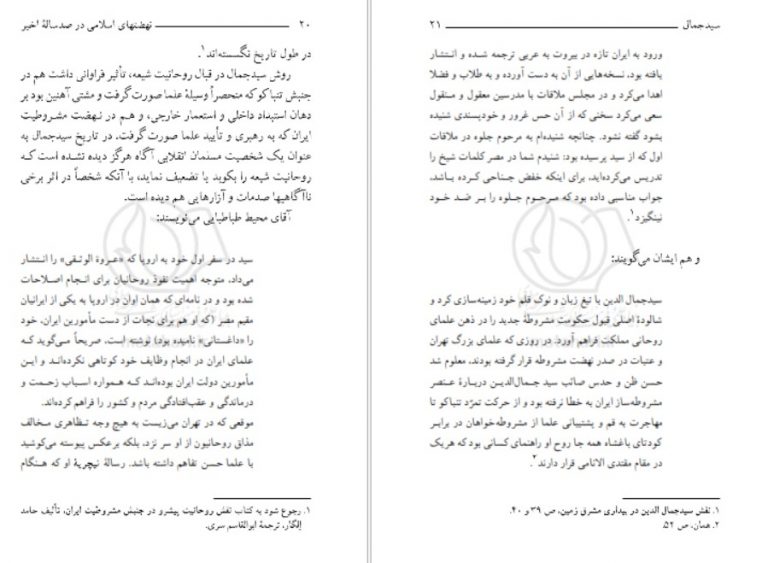 ۲۰ نهضتهای اسلامی در صدسالهٔ اخیر
در طول تاریخ نگسسته‌اند۱.
روش سیدجمال در قبال روحانیت شیعه، تأثیر فراوانی داشت هم در
جنبش تنباکو که منحصراً وسیلهٔ علما صورت گرفت و مشتی آهنین بود بر
دهان استبداد داخلی و استعمار خارجی، و هم در نهضت مشروطیت
ایران که به رهبری و تأیید علما صورت گرفت. در تاریخ سیدجمال به
عنوان یک شخصیت مسلمان انقلابی آگاه هرگز دیده نشده است که
روحانیت شیعه را بکوبد یا تضعیف نماید، با آنکه شخصاً در اثر برخی
ناآگاهیها صدمات و آزارهایی هم دیده است.
آقای محیط طباطبایی می‌نویسند:
سید در سفر اول خود به اروپا که «عروة الوثقی» را انتشار
می‌داد، متوجه اهمیت نفوذ روحانیان برای انجام اصلاحات
شده بود و در نامه‌ای که همان اوان در اروپا به یکی از ایرانیان
مقیم مصر (که او هم برای نجات از دست مأمورین ایران، خود
را «داغستانی» نامیده بود) نوشته است، صریحاً می‌گوید که
علمای ایران در انجام وظایف خود کوتاهی نکرده‌اند و این
مأمورین دولت ایران بوده‌اند که همواره اسباب زحمت و
درماندگی و عقب‌افتادگی مردم و کشور را فراهم کرده‌اند.
موقعی که در تهران می‌زیست به هیچ وجه تظاهری مخالف
مذاق روحانیون از او سر نزد، بلکه برعکس پیوسته می‌کوشید
با علما حسن تفاهم داشته باشد. رسالهٔ نیچریهٔ او که هنگام
۱. رجوع شود به کتاب نقش روحانیت پیشرو در جنبش مشروطیت ایران، تألیف حامد
الگار، ترجمهٔ ابوالقاسم سری.
سیدجمال ۲۱
ورود به ایران تازه در بیروت به عربی ترجمه شده و انتشار
یافته بود، نسخه‌هایی از آن به دست آورده و به طلاب و فضلا
اهدا می‌کرد و در مجلس ملاقات با مدرسین معقول و منقول
سعی می‌کرد سخنی که از آن حس غرور و خودپسندی شنیده
بشود گفته نشود. چنانچه شنیده‌ام به مرحوم جلوه در ملاقات
اول که از سید پرسیده بود: شنیدم شما در مصر کلمات شیخ را
تدریس می‌کرده‌اید، برای اینکه خفض جناحی کرده باشد،
جواب مناسبی داده بود که مرحوم جلوه را بر ضد خود
نینگیزد۱.
و هم ایشان می‌گویند:
سیدجمال الدین با تیغ زبان و نوک قلم خود زمینه‌سازی کرد و
شالودهٔ اصلی قبول حکومت مشروطهٔ جدید را در ذهن علمای
روحانی مملکت فراهم آورد. در روزی که علمای بزرگ تهران
و عتبات در صدر نهضت مشروطه قرار گرفته بودند، معلوم شد
حسن ظن و حدس صائب سید جمال‌الدین دربارهٔ عنصر
مشروطه‌ساز ایران به خطا نرفته بود و از حرکت تمرّد تنباکو تا
مهاجرت به قم و پشتیبانی علما از مشروطه‌خواهان در برابر
کودتای باغشاه همه جا روح او راهنمای کسانی بود که هریک
در مقام مقتدی الانامی قرار دارند۲.
۱. نقش سیدجمال الدین در بیداری مشرق زمین، ص ۳۹ و ۴۰.
۲. همان، ص ۵۲.